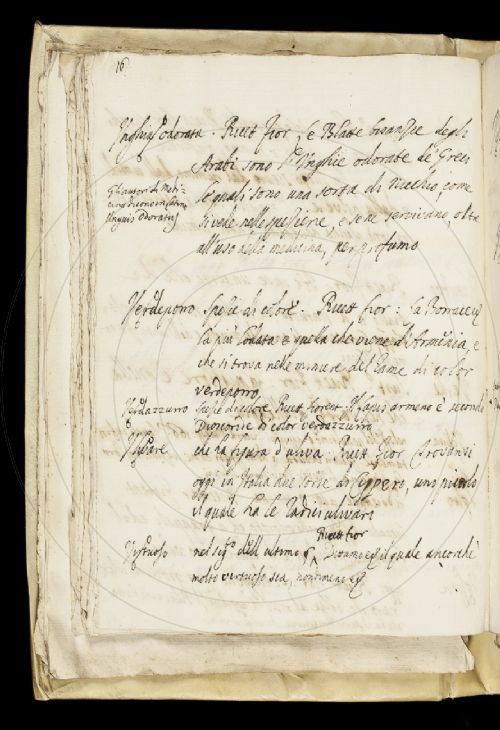 16
Unghia odorata. Ricett fior. Le Blatte bisanzie degli
Arabi sono l'Unghie odorate de Greci
le quali sono una sorta di Nicchio, come
si vede nelle spezierie, e se ne servivano, oltre
all'uso della medicina, per profumo
Gli autori di Medi=
cina dicono in latino
Unguis odoratus
Verdeporro. Spezie di colore. Ricett fior: La Borrace
la più lodata è quella che viene d'Armenia, e
che si trova nelle miniere del rame di color
verdeporro,
Verdazzurro spezie di colore Ricett fiorent. armeno è secondo
Dioscoride di color verdazzurro
che ha figura d'uliva. Ricett. fior Trovansi
oggi in Italia due sorte di Cyppero, uno piccolo
il quale ha le Radici ulivari
Virtuoso nel sig.º dell'ultimo § Ricett fior il quale ancorchè
molto virtuoso sia, nondimeno